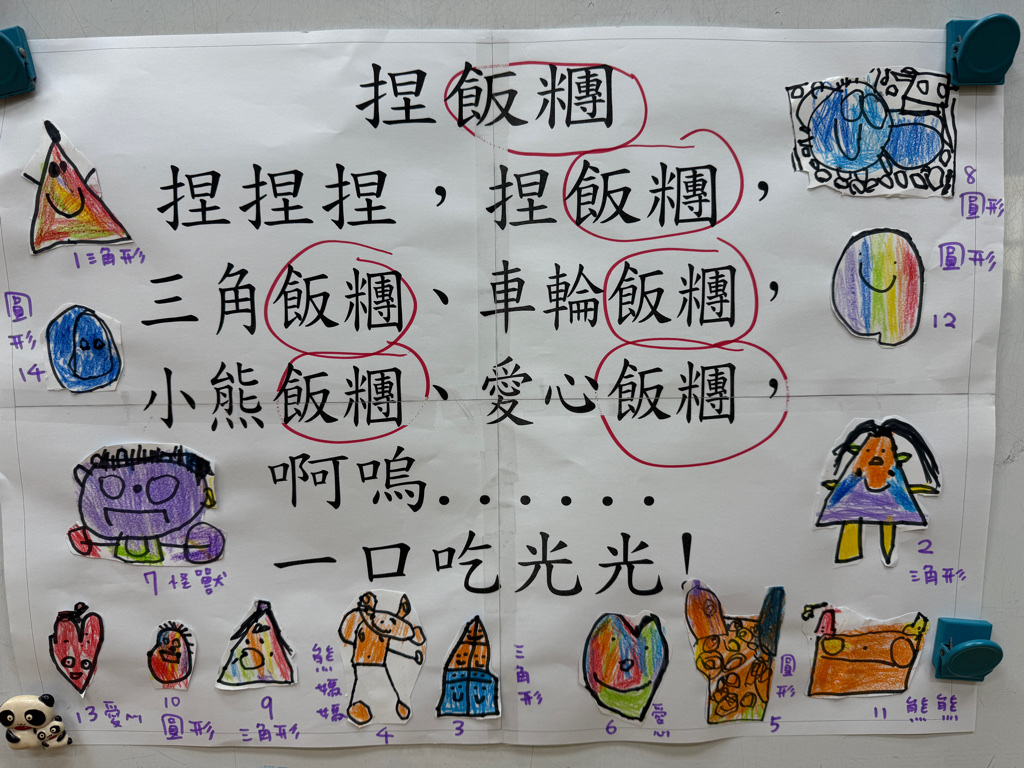 捏飯糰
捏捏捏，捏飯糰，
三角飯糰、車輪飯糰，
小熊飯糰、愛心飯糰，
啊嗚......
一口吃光光!
1三角形
8
圓形
圓形
12
圓形
14
7怪獸
2
三角形
13愛心
10
圓形
9
三角形
熊媽媽
4
3
三角形
6
愛心
圓形
5
11 熊熊